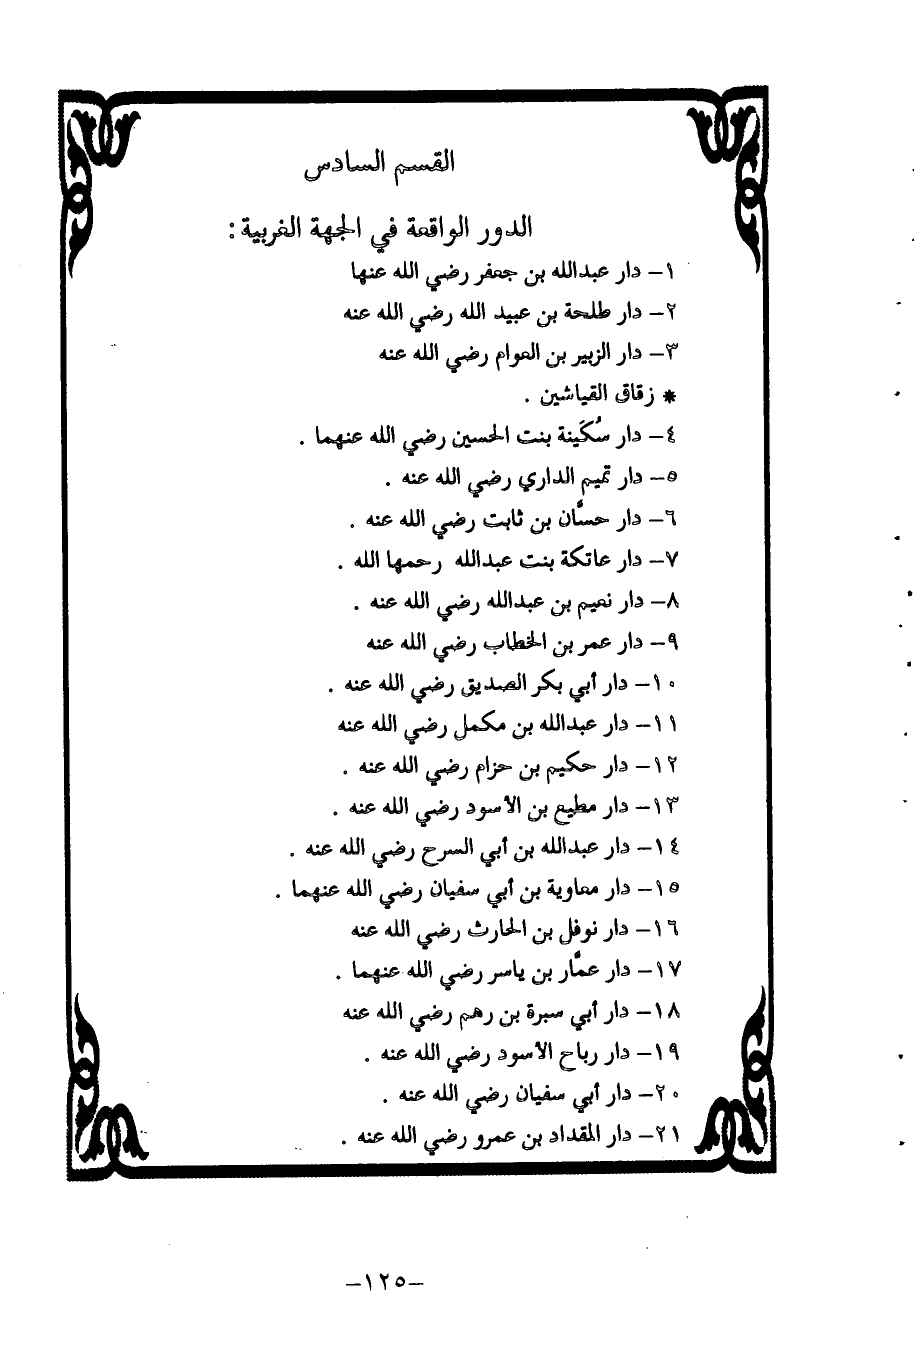 القسم السادس
الدور الواقعة في الجهة الغربية :
١– دار عبدالله بن جعفر رضي الله عنها
٢– دار طلحة بن عبيد الله رضي الله عنه
٣– دار الزبير بن العوام رضي الله عنه
* زقاق القياشين .
٤– دار سُكَينة بنت الحسين رضي الله عنهما .
٥– دار تميم الداري رضي الله عنه .
٦– دار حسَّان بن ثابت رضي الله عنه .
٧– دار عاتكة بنت عبدالله رحمها الله .
٨– دار نعيم بن عبدالله رضي الله عنه .
٩– دار عمر بن الخطاب رضي الله عنه
١٠– دار أبي بكر الصديق رضي الله عنه .
١١– دار عبدالله بن مكمل رضي الله عنه
١٢– دار حكيم بن حزام رضي الله عنه .
١٣– دار مطيع بن الأسود رضي الله عنه .
١٤– دار عبدالله بن أبي السرح رضي الله عنه .
١٥– دار معاوية بن أبي سفيان رضي الله عنهما .
١٦– دار نوفل بن الحارث رضي الله عنه
١٧– دار عمَّار بن ياسر رضي الله عنهما .
١٨– دار أبي سبرة بن رهم رضي الله عنه
١٩– دار رباح الأسود رضي الله عنه .
٢٠– دار أبي سفيان رضي الله عنه .
٢١– دار المقداد بن عمرو رضي الله عنه .
–١٢٥–